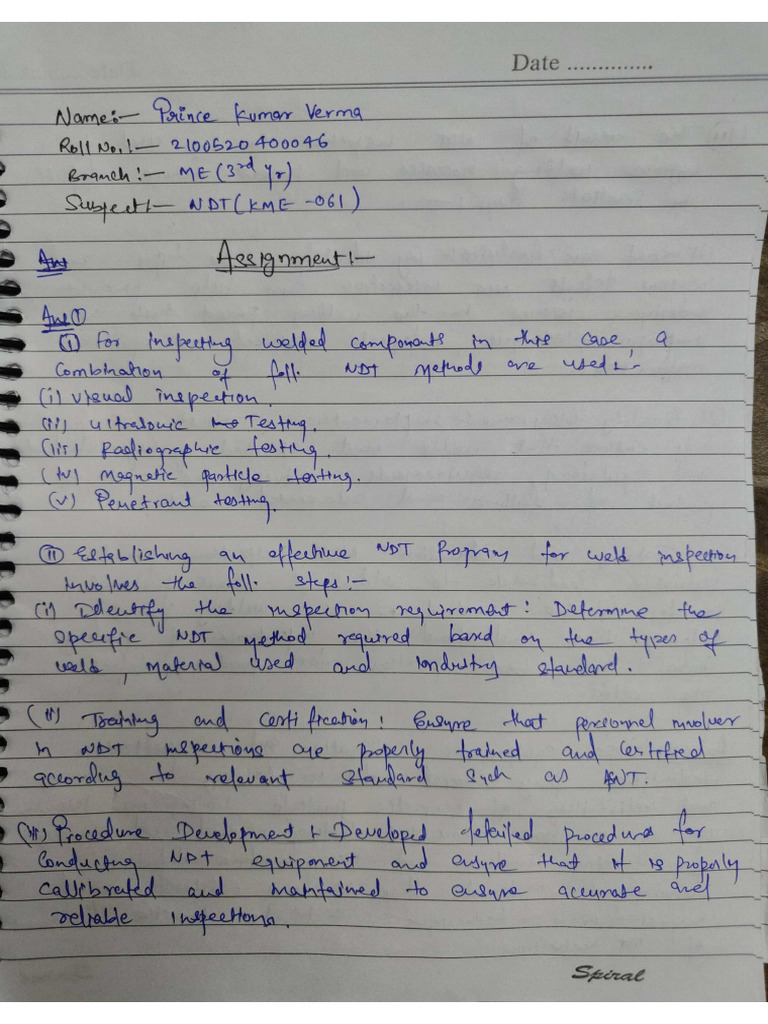 Date ..............
Name:- Prince Kumar Verma
Roll No.!- 2100520400046
Branch!- ME (3rd yr)
Subject!- NDT (KME -061)
Ans Assignment!-
Ans ①
① For inspecting welded components in this case, a
combination of foll. NDT methods are used:-
(i) visual inspection.
(ii) ultrasonic Testing.
(iii) Radiographic testing.
(iv) magnetic particle testing.
(v) Penetrant testing.
② Establishing an effective NDT Program for weld inspection
involves the foll. steps!-
(i) Identify the inspection requirement: Determine the
specific NDT method required based on the types of
weld, material used and industry standard.
(ii) Training and certification: Ensure that personnel involver
in NDT inspections are properly trained and certified
according to relevant standard such as ANT.
(iii) Procedure Development: Developed detailed procedures for
conducting NDT equiponent and ensure that it is properly
callibrated and maintained to ensure accurate and
reliable inspections.
Spiral